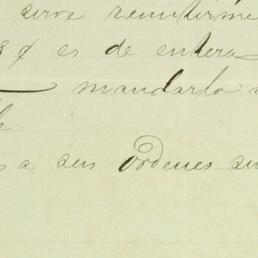 sirve remitirme
es de entera
mandarlo a
s a sus Ordenes su